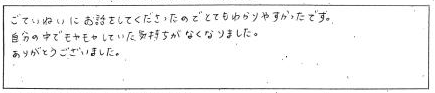 ごていねいにお話をしてくださったのでとてもわかりやすかったです。
自分の中でモヤモヤしていた気持ちがなくなりました。
ありがとうございました。